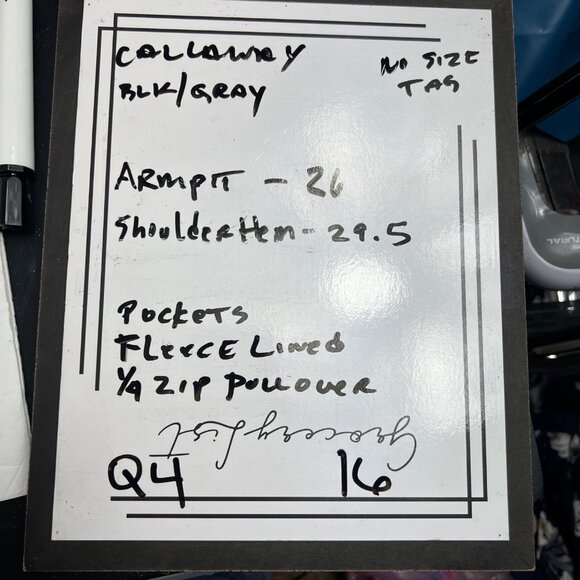 CALLAWAY
NO SIZE
TAG
BLK/GRAY
ARMPIT - 26
ShoulderHem - 29.5
POCKETS
FLEECE LINED
1/4 ZIP PULLOVER
Grocery List
Q4 16
NATURAL